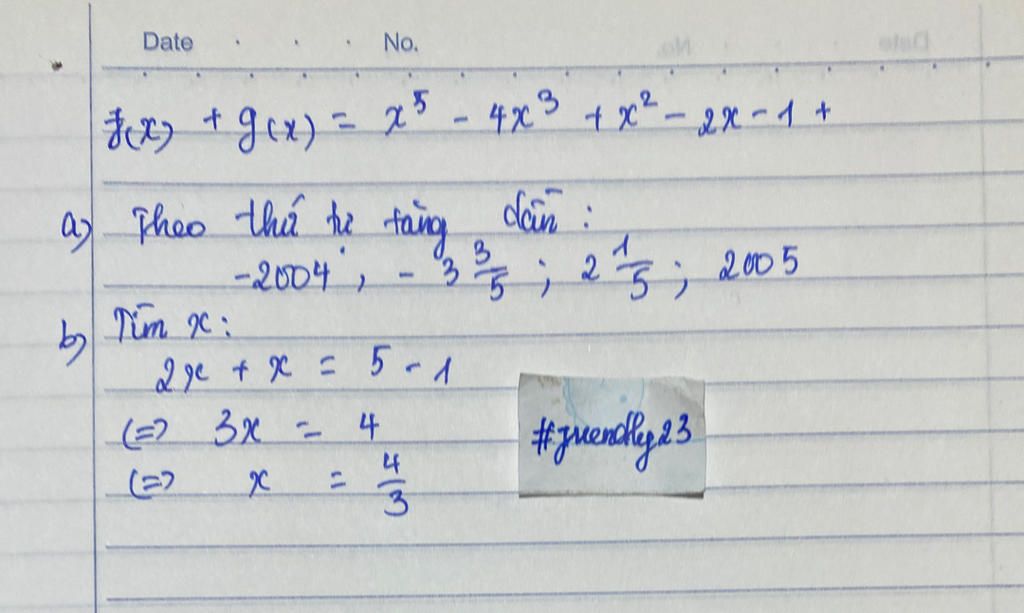 Date No.
f(x) + g(x) = x⁵ - 4x³ + x² - 2x - 1 +
a) Theo thứ tự tăng dần:
-2004 ; - 3 3/5 ; 2 1/5 ; 2005
b) Tìm x:
2x + x = 5 - 1
(=> 3x = 4
(=> x = 4/3